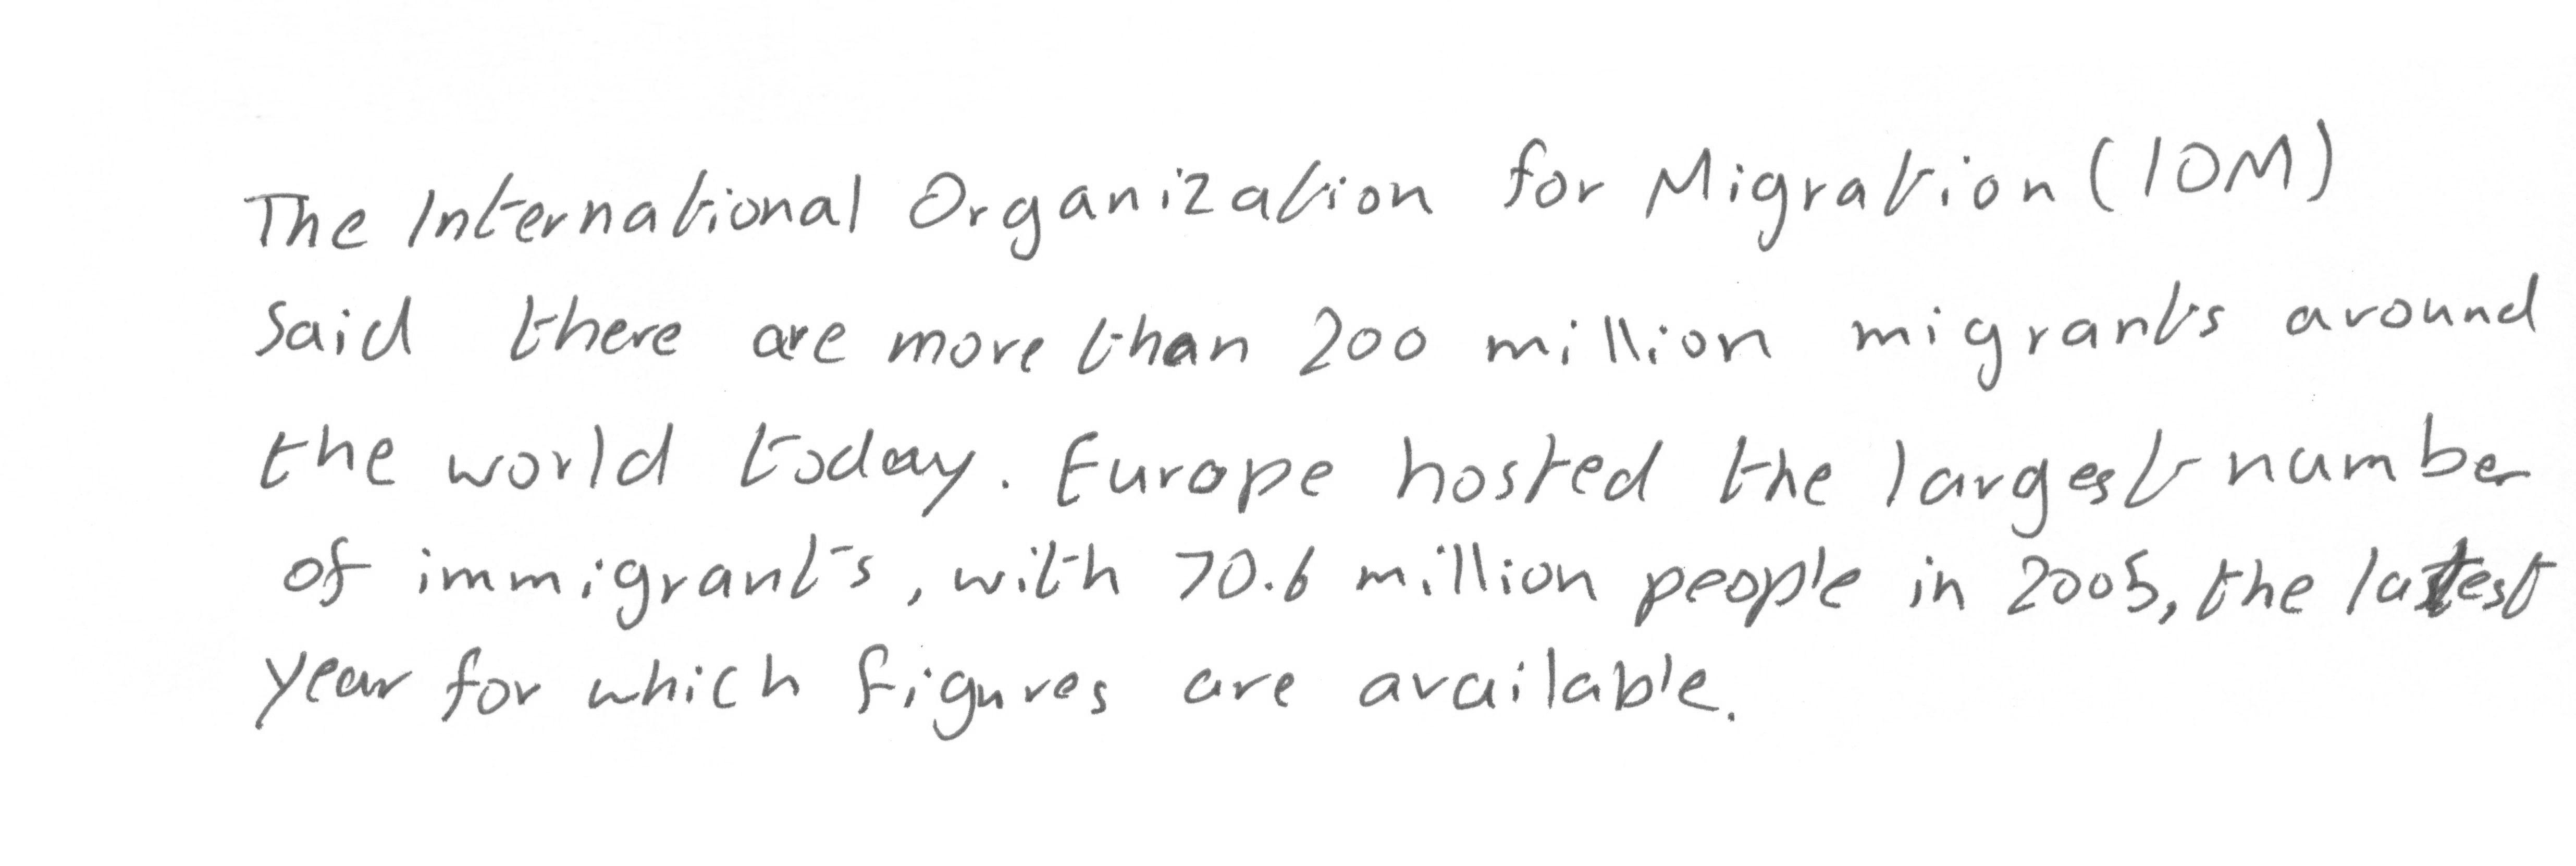 The International Organization for Migration (IOM)
said there are more than 200 million migrants around
the world today. Europe hosted the largest number
of immigrants, with 70.6 million people in 2005, the latest
year for which figures are available.